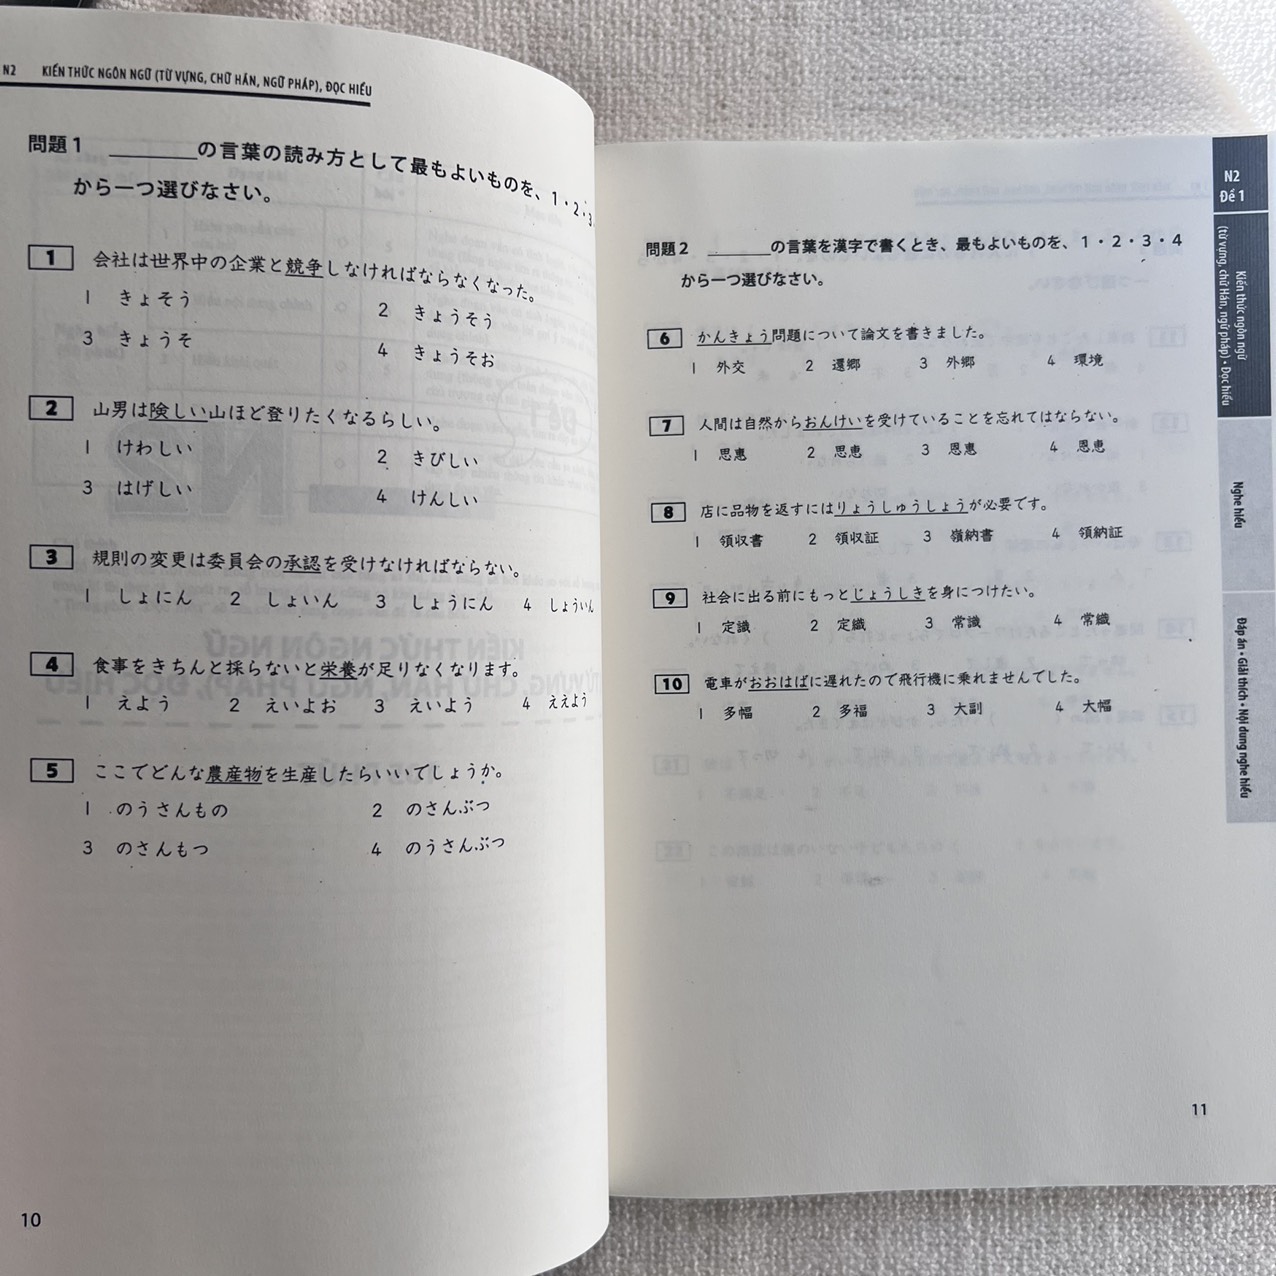 N2 KIẾN THỨC NGÔN NGỮ (TỪ VỰNG, CHỮ HÁN, NGỮ PHÁP), ĐỌC HIỂU
問題1 ＿＿＿の言葉の読み方として最もよいものを、1・2・3
から一つ選びなさい。
1 会社は世界中の企業と競争しなければならなくなった。
1 きょそう 2 きょうそう
3 きょうそ 4 きょうそお
2 山男は険しい山ほど登りたくなるらしい。
1 けわしい 2 きびしい
3 はげしい 4 けんしい
3 規則の変更は委員会の承認を受けなければならない。
1 しょにん 2 しょいん 3 しょうにん 4 しょういん
4 食事をきちんと採らないと栄養が足りなくなります。
1 えよう 2 えいよお 3 えいよう 4 ええよう
5 ここでどんな農産物を生産したらいいでしょうか。
1 のうさんもの 2 のさんぶつ
3 のさんもつ 4 のうさんぶつ
10
問題2 ＿＿＿の言葉を漢字で書くとき、最もよいものを、1・2・3・4
から一つ選びなさい。
6 かんきょう問題について論文を書きました。
1 外交 2 還郷 3 外郷 4 環境
7 人間は自然からおんけいを受けていることを忘れてはならない。
1 思惠 2 思恵 3 恩惠 4 恩恵
8 店に品物を返すにはりょうしゅうしょうが必要です。
1 領収書 2 領収証 3 嶺納書 4 領納証
9 社会に出る前にもっとじょうしきを身につけたい。
1 定識 2 定織 3 常識 4 常織
10 電車がおおはばに遅れたので飛行機に乗れませんでした。
1 多幅 2 多福 3 大副 4 大幅
11
N2
Đề 1
Kiến thức ngôn ngữ
(từ vựng, chữ Hán, ngữ pháp) • Đọc hiểu
Nghe hiểu
Đáp án • Giải thích • Nội dung nghe hiểu